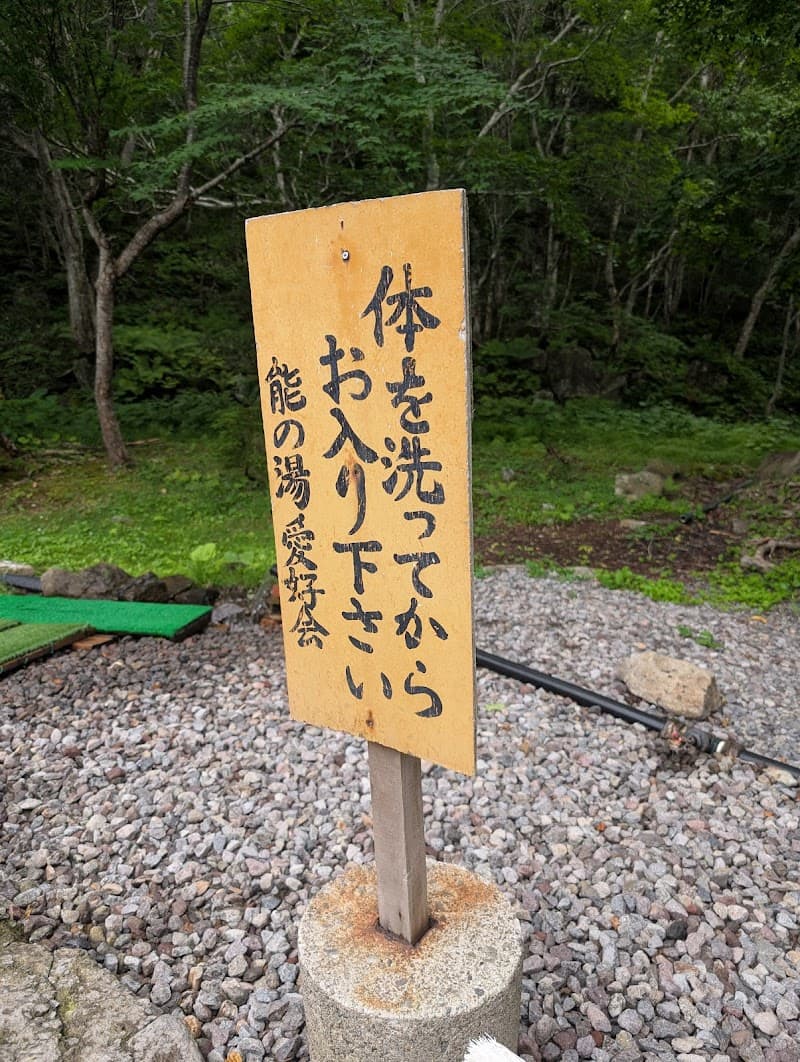 体を洗ってから
お入り下さい
能の湯愛好会